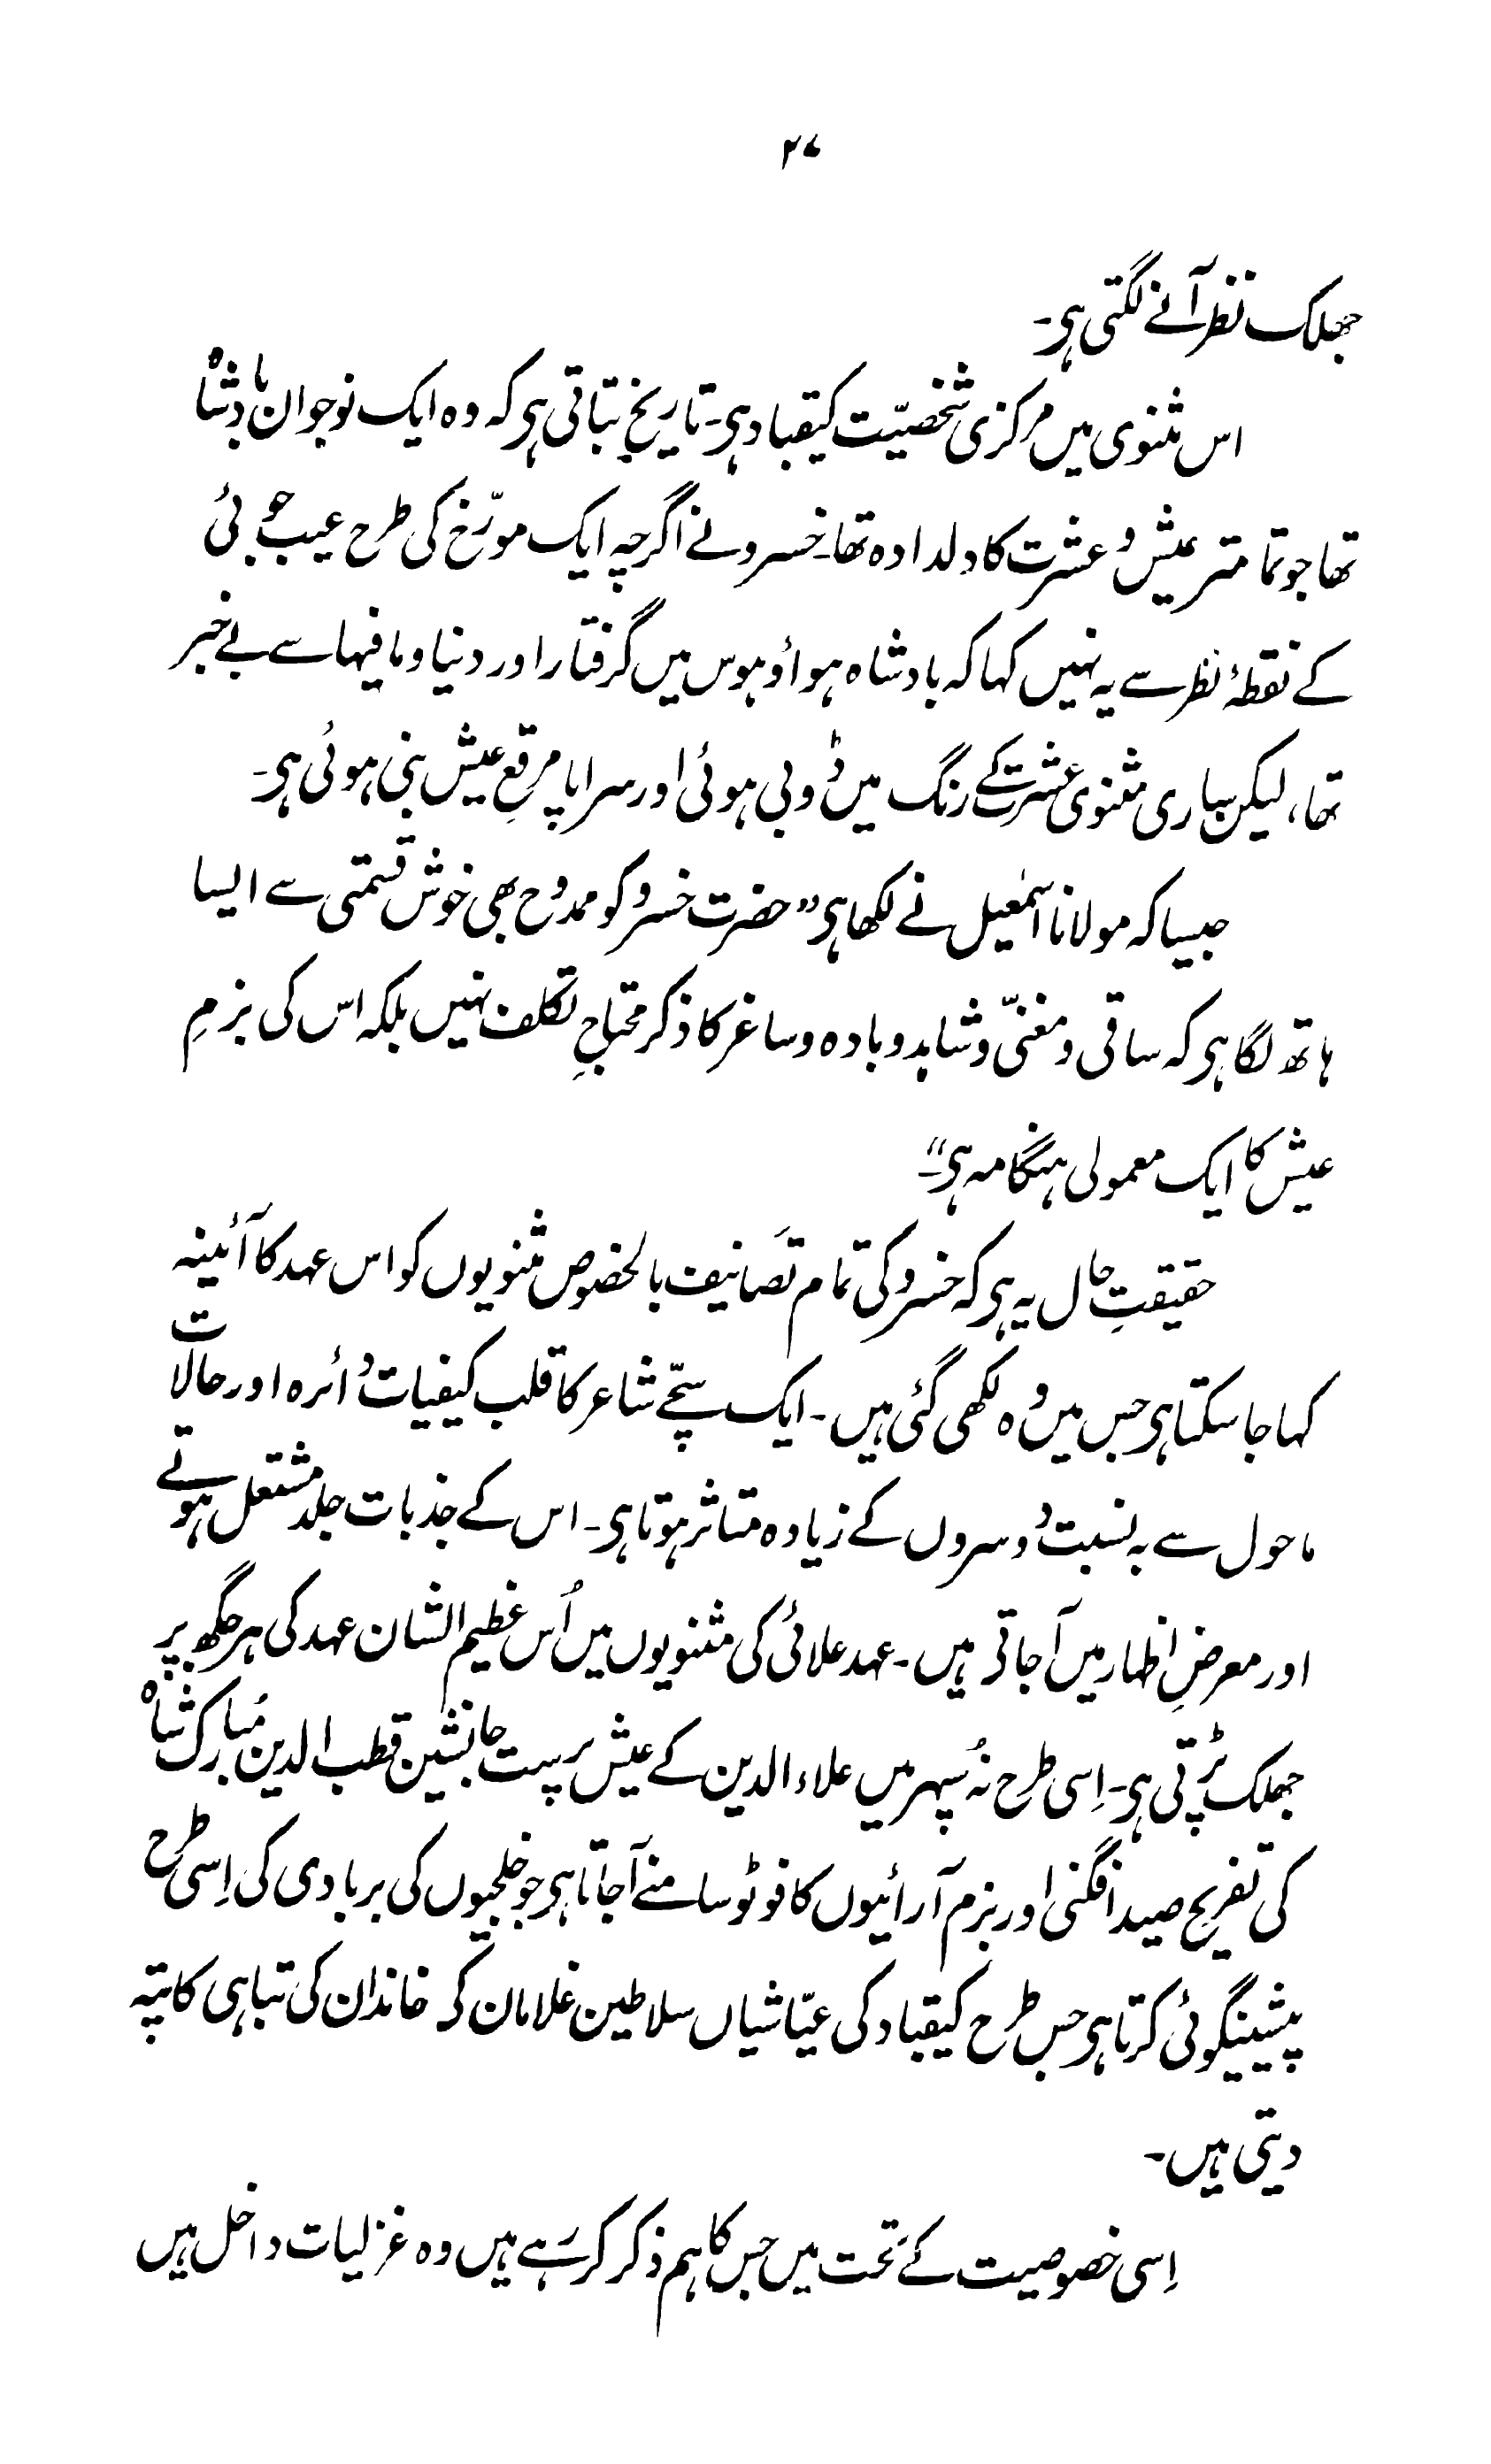 ۲۷
جھلک نظر آنے لگتی ہی۔
اس مثنوی میں مرکزی شخصیّت کیقباد ہی۔ تاریخ بتاتی ہی کہ وہ ایک نوجوان بادشاہ
تھا جو تمامتر عیش و عشرت کا دلدادہ تھا۔ خسرو نے اگرچہ ایک مورّخ کی طرح عیب جوئی
کے نقطۂ نظر سے یہ نہیں کہا کہ بادشاہ ہوا و ہوس میں گرفتار اور دنیا و مافیہا سے بے خبر
تھا، لیکن ساری مثنوی عشرت کے رنگ میں ڈوبی ہوئی اور سراپا مرقعِ عیش بنی ہوئی ہی۔
جیسا کہ مولانا اسمٰعیل نے لکھا ہی "حضرت خسرو کو ممدوح بھی خوش قسمتی سے ایسا
ہاتھ لگا ہی کہ ساقی و مغنّی و شاہد و بادہ و ساغر کا ذکر محتاجِ تکلف نہیں بلکہ اس کی بزمِ
عیش کا ایک معمولی ہنگامہ ہی"۔
حقیقتِ حال یہ ہی کہ خسرو کی تمام تصانیف بالخصوص مثنویوں کو اس عہد کا آئینہ
کہا جا سکتا ہی جس میں وہ لکھی گئی ہیں۔ ایک سچّے شاعر کا قلب کیفیات دائرہ اور حالات
ماحول سے بہ نسبت دوسروں کے زیادہ متاثر ہوتا ہی۔ اس کے جذبات جلد مشتعل ہوتے
اور معرضِ اظہار میں آجاتی ہیں۔ عہد علائی کی مثنویوں میں اُس عظیم الشان عہد کی ہر جگھ پر
جھلک پڑتی ہی۔ اِسی طرح نُہ سپہر میں علاء الدین کے عیش پرست جانشین قطب الدین مُبارک شاہ
کی تفریح صید افگنی اور بزم آرائیوں کا فوٹو سامنے آجاتا ہی جو خلجیوں کی بربادی کی اِسی طرح
پیشینگوئی کرتا ہی جس طرح کیقباد کی عیّاشیاں سلاطین غلامان کے خاندان کی تباہی کا پتہ
دیتی ہیں۔
اِسی خصوصیت کے تحت میں جس کا ہم ذکر کر رہے ہیں وہ غزلیات داخل ہیں